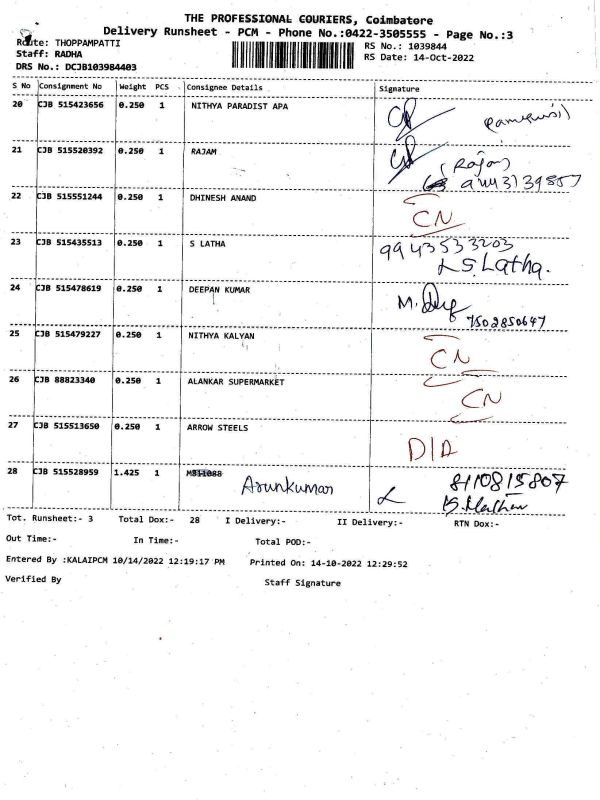 THE PROFESSIONAL COURIERS, Coimbatore
Delivery Runsheet - PCM - Phone No.:0422-3505555 - Page No.:3
Route: THOPPAMPATTI
RS No.: 1039844
Staff: RADHA
RS Date: 14-Oct-2022
DRS No.: DCJB103984403
S No Consignment No Weight PCS Consignee Details Signature
20 CJB 515423656 0.250 1 NITHYA PARADIST APA
21 CJB 515520392 0.250 1 RAJAM (Rajam)
22 CJB 515551244 0.250 1 DHINESH ANAND CN
23 CJB 515435513 0.250 1 S LATHA 9943533203
S.Latha.
24 CJB 515478619 0.250 1 DEEPAN KUMAR M.
7502850647
25 CJB 515479227 0.250 1 NITHYA KALYAN CN
26 CJB 88823340 0.250 1 ALANKAR SUPERMARKET CN
27 CJB 515513650 0.250 1 ARROW STEELS D/A
28 CJB 515528959 1.425 1 Arunkumar 8110815807
Tot. Runsheet:- 3 Total Dox:- 28 I Delivery:- II Delivery:- RTN Dox:-
Out Time:- In Time:- Total POD:-
Entered By :KALAIPCM 10/14/2022 12:19:17 PM Printed On: 14-10-2022 12:29:52
Verified By Staff Signature